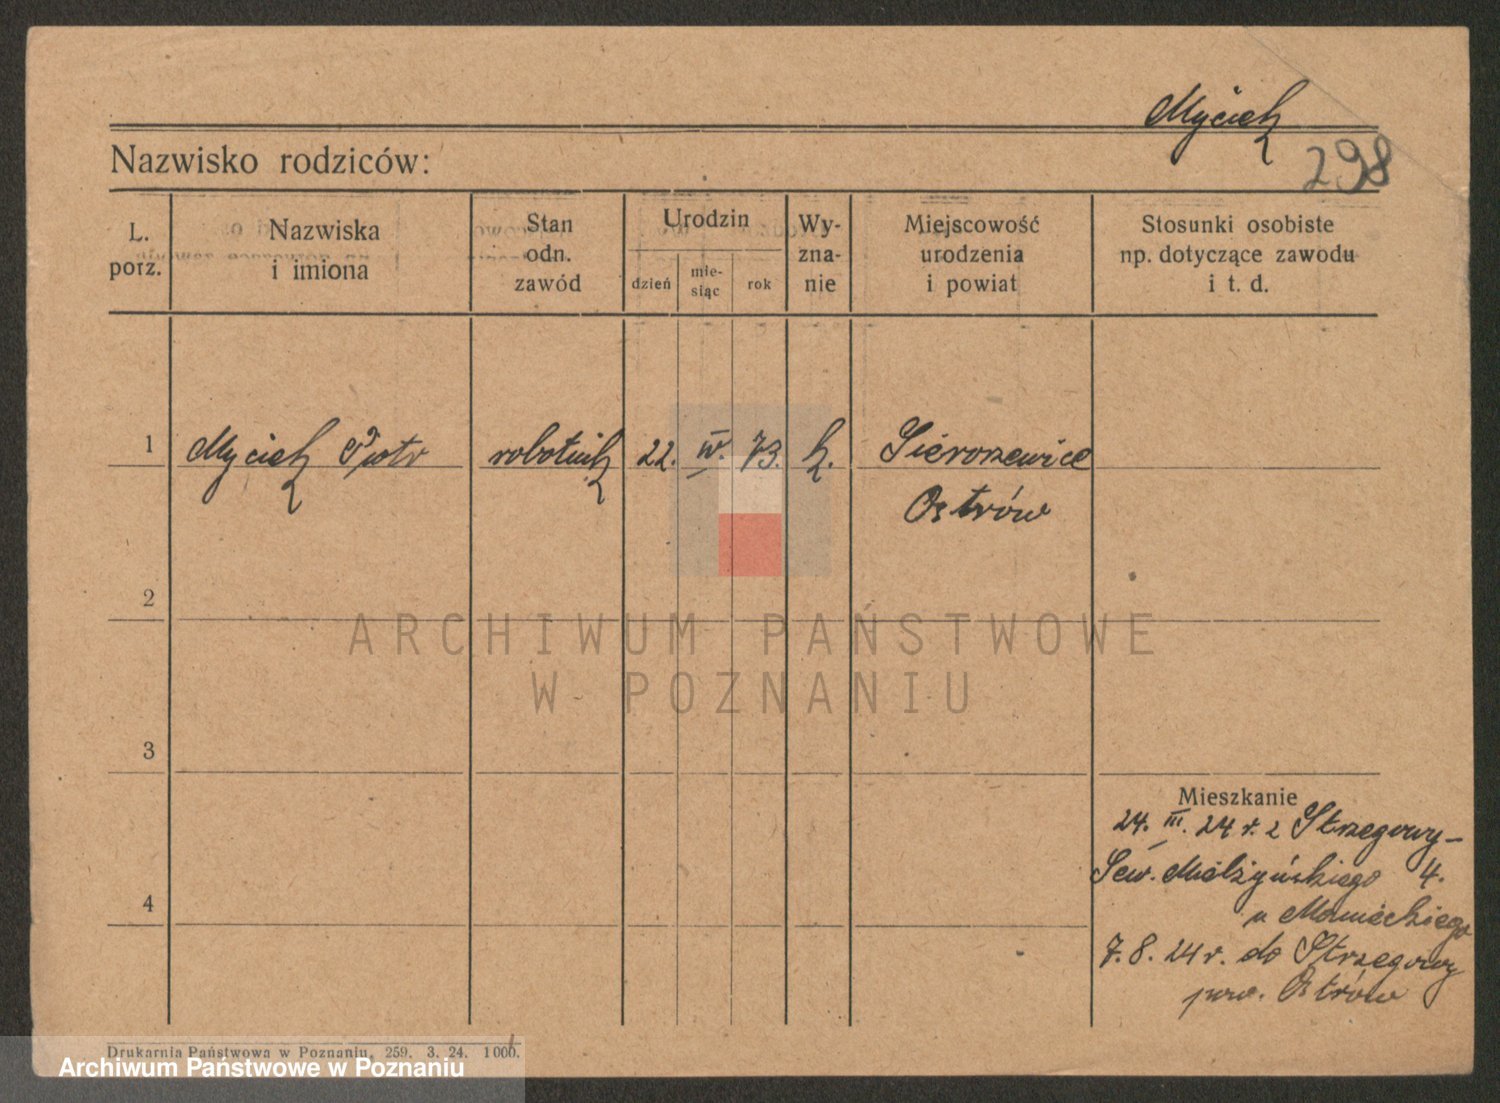 Myciek
298
Nazwisko rodziców:
L. porz.
Nazwiska i imiona
Stan odn. zawód
Urodzin
dzień
mie- siąc
rok
Wy- zna- nie
Miejscowość urodzenia i powiat
Stosunki osobiste np. dotyczące zawodu i t. d.
1 Myciek Piotr robotnik 22. IV. 73. k. Sieroszewice
Ostrów
2
3
4
Mieszkanie
24. III. 24 r. z Strzegowy-
Sew. Mielżyńskiego 4.
u Manieckiego
7.8.24 r. do Strzegowy
pow. Ostrów
Drukarnia Państwowa w Poznaniu, 259. 3. 24. 1000.
ARCHIWUM PAŃSTWOWE
W POZNANIU
Archiwum Państwowe w Poznaniu